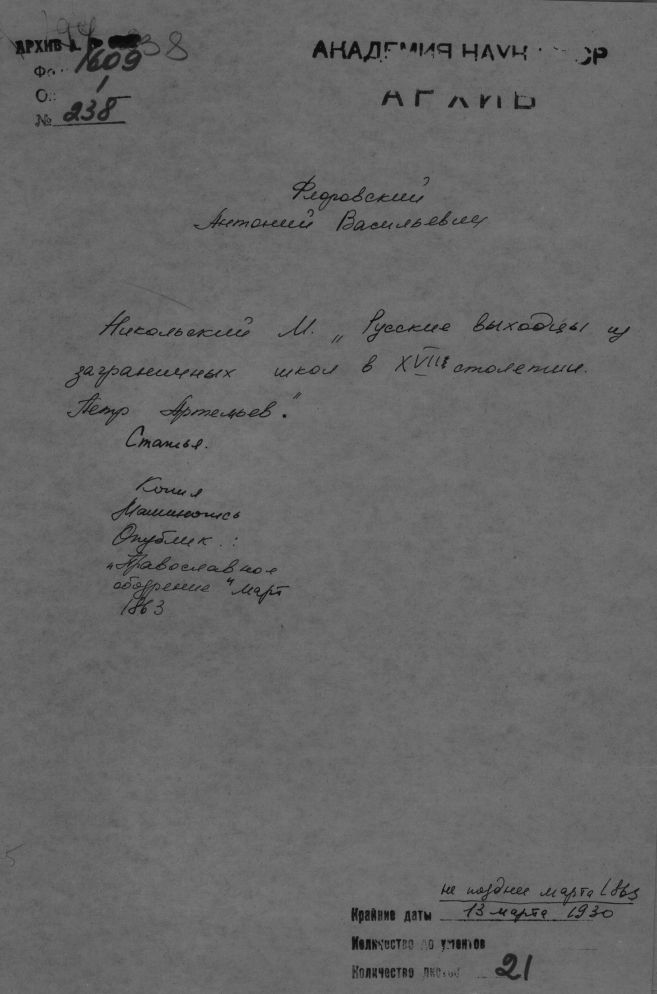 АРХИВ А.
238
АКАДЕМИЯ НАУК СССР
Фо. 1609
АРХИВ
О.: 1
№ 238
Флоровский
Антоний Васильевич
Никольский М. „Русские выходцы из
заграничных школ в XVIII столетии.
Петр Артемьев".
Статья.
Копия
Машинопись
Опублик.:
„Православное
обозрение" март
1863
5
не позднее марта 1863
Крайние даты 13 марта 1930
Количество документов
Количество листов 21